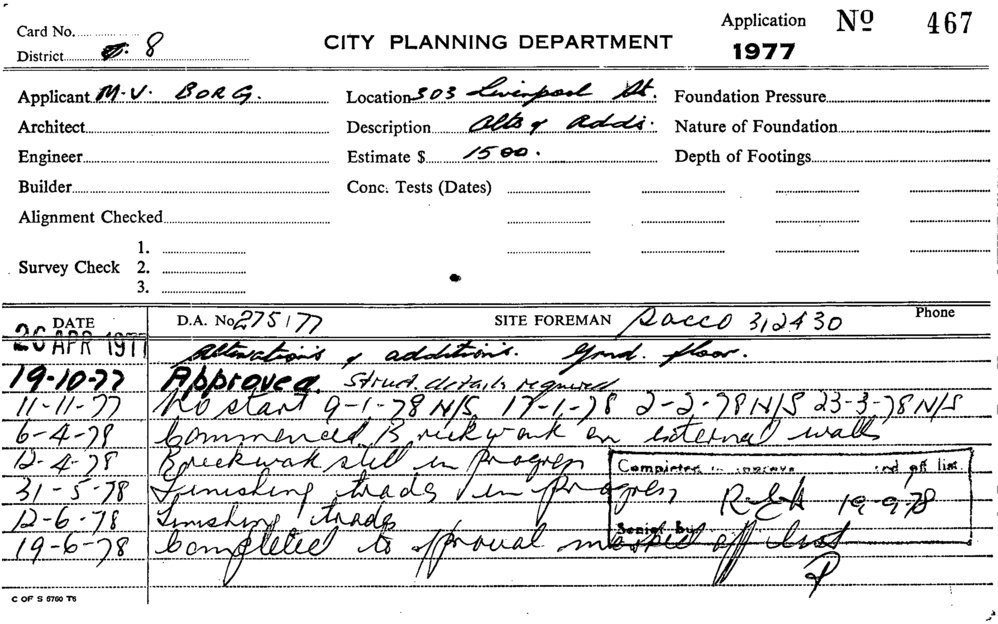 Card No.
District 8
CITY PLANNING DEPARTMENT
Application Nº 467
1977
Applicant M.V. BORG.
Architect
Engineer
Builder
Alignment Checked
Survey Check 1.
2.
3.
Location 303 Liverpool St.
Description Alts & Adds.
Estimate $ 1500.
Conc. Tests (Dates)
Foundation Pressure
Nature of Foundation
Depth of Footings
DATE D.A. No 275/77 SITE FOREMAN Rocco 312430 Phone
26 APR 1977 Alterations & additions. Grnd. floor.
19-10-77 Approved. Struct. details required
11-11-77 No start 9-1-78 N/S 17-1-78 2-2-78 N/S 23-3-78 N/S
6-4-78 Commenced Brickwork on external walls
12-4-78 Brickwork still in progress
31-5-78 Finishing trades in progress
12-6-78 Finishing trades
19-6-78 Completed to approval marked off
Completed and off list.
19-9-78
by
C OF S 5760 T6